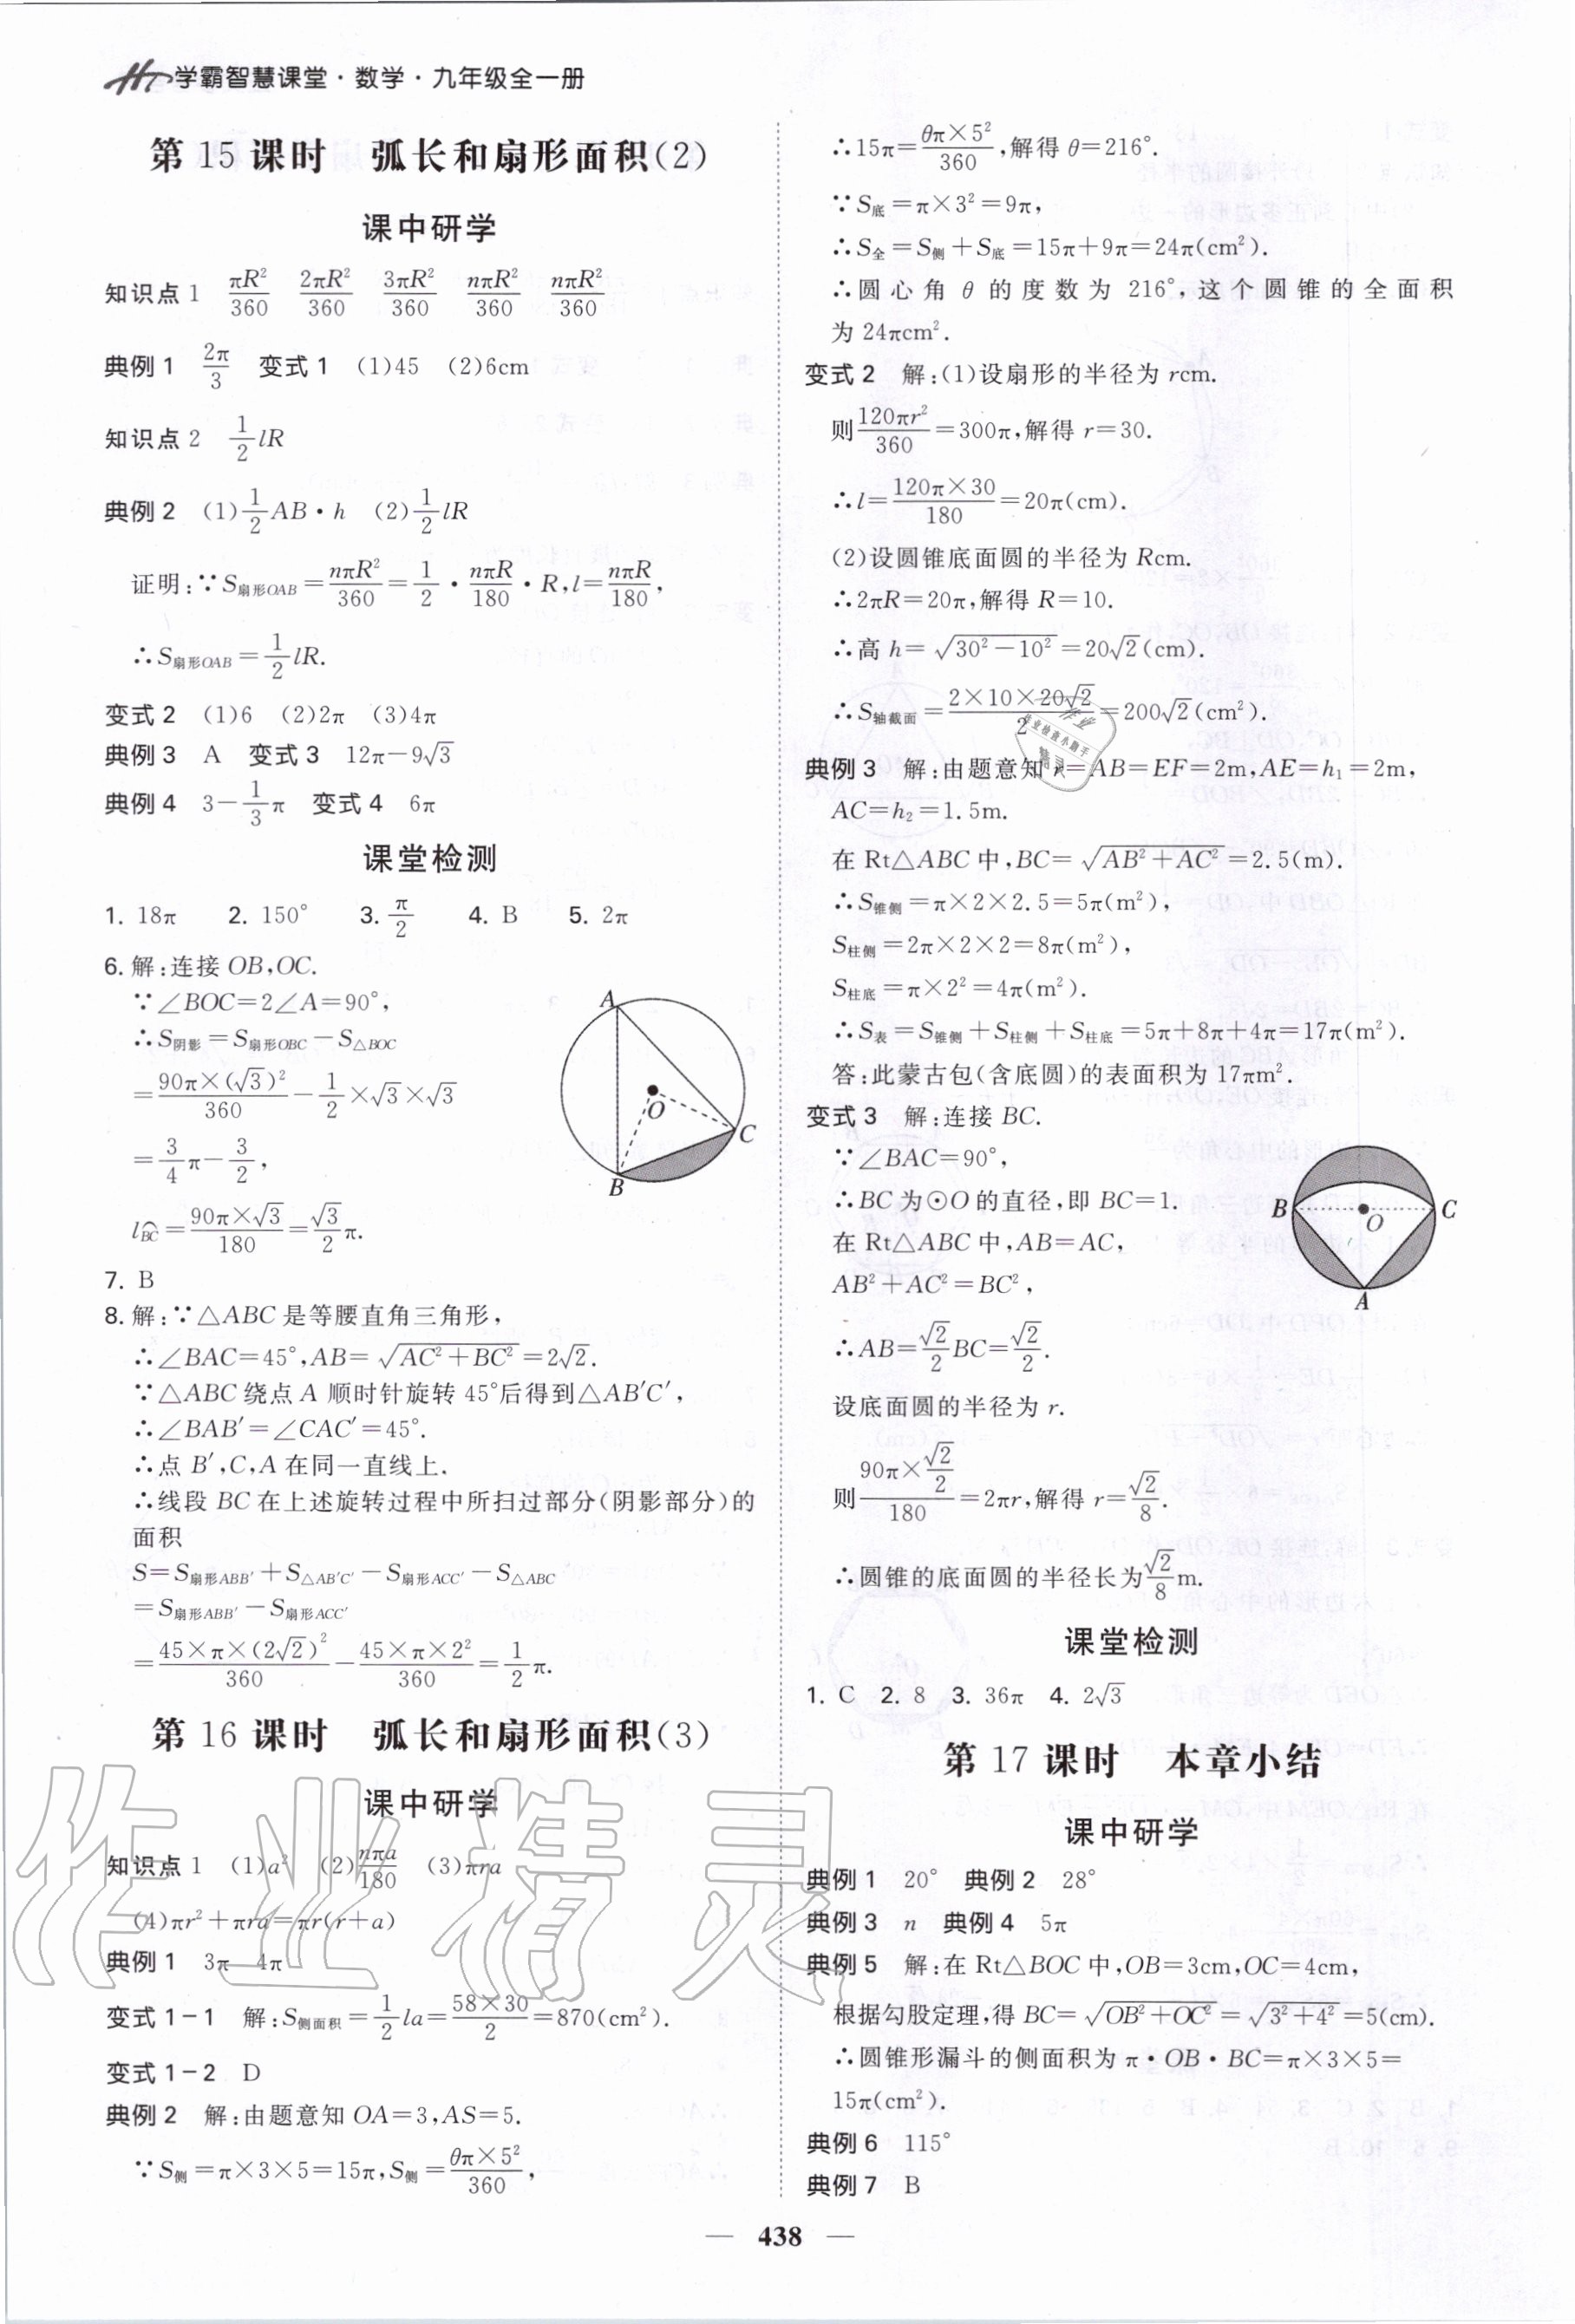 学霸智慧课堂·数学·九年级全一册
第 15 课时 弧长和扇形面积(2)
课中研学
知识点 1 πR²/360 2πR²/360 3πR²/360 nπR²/360 nπR²/360
典例 1 2π/3 变式 1 (1)45 (2)6cm
知识点 2 1/2 lR
典例 2 (1)1/2 AB·h (2)1/2 lR
证明:∵S扇形OAB=nπR²/360=1/2·nπR/180·R,l=nπR/180,
∴S扇形OAB=1/2 lR.
变式 2 (1)6 (2)2π (3)4π
典例 3 A 变式 3 12π-9√3
典例 4 3-1/3 π 变式 4 6π
课堂检测
1. 18π 2. 150° 3. π/2 4. B 5. 2π
6. 解:连接 OB,OC.
∵∠BOC=2∠A=90°,
∴S阴影=S扇形OBC-S△BOC
=90π×(√3)²/360-1/2×√3×√3
=3/4 π-3/2,
l⌒BC=90π×√3/180=√3/2 π.
A
O
C
B
7. B
8. 解:∵△ABC 是等腰直角三角形,
∴∠BAC=45°,AB=√(AC²+BC²)=2√2.
∵△ABC 绕点 A 顺时针旋转 45°后得到△AB′C′,
∴∠BAB′=∠CAC′=45°.
∴点 B′,C,A 在同一直线上.
∴线段 BC 在上述旋转过程中所扫过部分(阴影部分)的
面积
S=S扇形ABB′+S△AB′C′-S扇形ACC′-S△ABC
=S扇形ABB′-S扇形ACC′
=45×π×(2√2)²/360-45×π×2²/360=1/2 π.
第 16 课时 弧长和扇形面积(3)
课中研学
知识点 1 (1)a² (2)nπa/180 (3)πra
(4)πr²+πra=πr(r+a)
典例 1 3π 4π
变式 1-1 解:S侧面积=1/2 la=58×30/2=870(cm²).
变式 1-2 D
典例 2 解:由题意知 OA=3,AS=5.
∵S侧=π×3×5=15π,S侧=θπ×5²/360,
∴15π=θπ×5²/360,解得 θ=216°.
∵S底=π×3²=9π,
∴S全=S侧+S底=15π+9π=24π(cm²).
∴圆心角 θ 的度数为 216°,这个圆锥的全面积
为 24πcm².
变式 2 解:(1)设扇形的半径为 rcm.
则120πr²/360=300π,解得 r=30.
∴l=120π×30/180=20π(cm).
(2)设圆锥底面圆的半径为 Rcm.
∴2πR=20π,解得 R=10.
∴高 h=√(30²-10²)=20√2(cm).
∴S轴截面=2×10×20√2/2=200√2(cm²).
典例 3 解:由题意知 r=AB=EF=2m,AE=h₁=2m,
AC=h₂=1.5m.
在 Rt△ABC 中,BC=√(AB²+AC²)=2.5(m).
∴S锥侧=π×2×2.5=5π(m²),
S柱侧=2π×2×2=8π(m²),
S柱底=π×2²=4π(m²).
∴S表=S锥侧+S柱侧+S柱底=5π+8π+4π=17π(m²).
答:此蒙古包(含底圆)的表面积为 17πm².
变式 3 解:连接 BC.
∵∠BAC=90°,
∴BC 为⊙O 的直径,即 BC=1.
在 Rt△ABC 中,AB=AC,
AB²+AC²=BC²,
∴AB=√2/2 BC=√2/2.
B
O
C
A
设底面圆的半径为 r.
则(90π×√2/2)/180=2πr,解得 r=√2/8.
∴圆锥的底面圆的半径长为√2/8 m.
课堂检测
1. C 2. 8 3. 36π 4. 2√3
第 17 课时 本章小结
课中研学
典例 1 20° 典例 2 28°
典例 3 n 典例 4 5π
典例 5 解:在 Rt△BOC 中,OB=3cm,OC=4cm,
根据勾股定理,得 BC=√(OB²+OC²)=√(3²+4²)=5(cm).
∴圆锥形漏斗的侧面积为 π·OB·BC=π×3×5=
15π(cm²).
典例 6 115°
典例 7 B
— 438 —
作业精灵